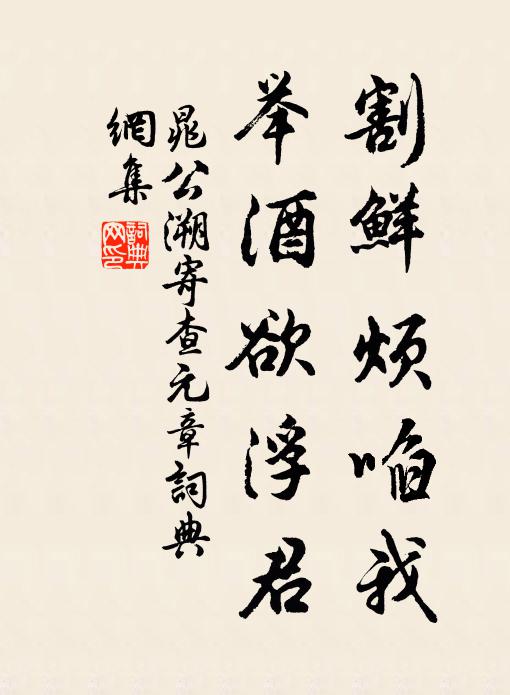 割鮮煩啗我
举酒欲浮君
晁公溯寄查元章詞典
網集
詞典
网印